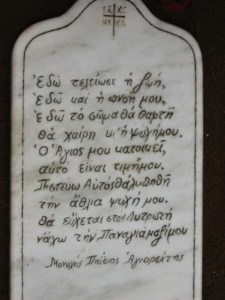 ΙΣ ΧΣ
ΝΙ ΚΑ
Ἐδῶ τελείωσε ἡ ζωή,
ἐδῶ καί ἡ πνοή μου,
ἐδῶ τό σῶμα θά θαφτῆ
θά χαίρη κι' ἡ ψυχή μου.
Ὁ Ἅγιός μου κατοικεῖ,
αὐτό εἶναι τιμή μου.
Πιστεύω Αὐτός θα λυπηθῆ
τήν ἄθλια ψυχή μου.
Θά εὔχεται στον Λυτρωτή
νάχω τήν Παναγιά μαζί μου
Μοναχός Παΐσιος Ἁγιορείτης